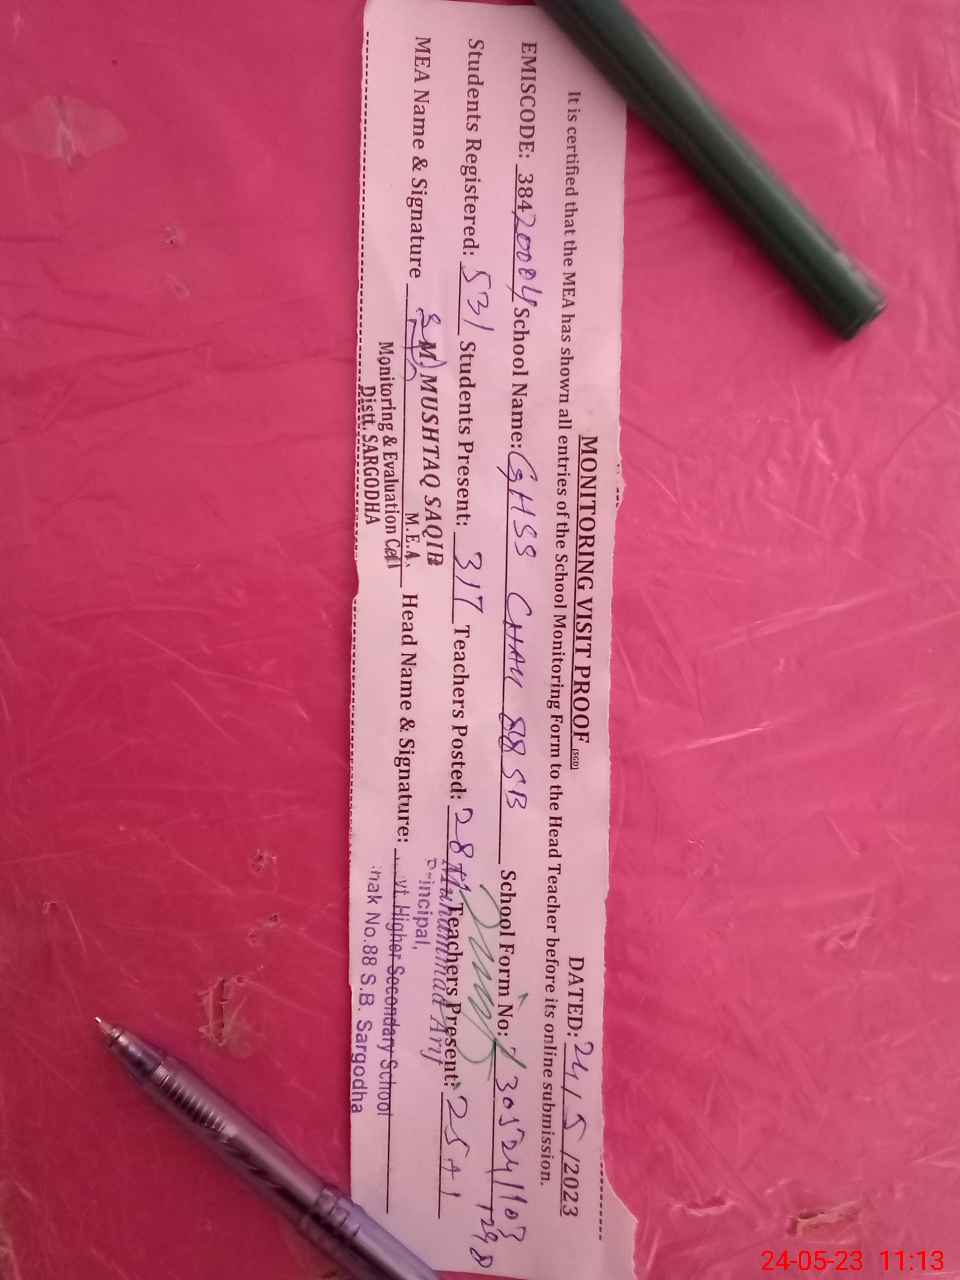 MONITORING VISIT PROOF (SGD)
DATED: 24/5/2023
It is certified that the MEA has shown all entries of the School Monitoring Form to the Head Teacher before its online submission.
EMISCODE: 38420004 School Name: GHSS CHAK 88 SB School Form No:
Students Registered: 531 Students Present: 317 Teachers Posted: 28 Teachers Present: 25
MEA Name & Signature Head Name & Signature:
M. MUSHTAQ SAQIB
M.E.A.
Monitoring & Evaluation Cell
Distt. SARGODHA
Muhammad Arif
Principal,
vt. Higher Secondary School
hak No.88 S.B. Sargodha
24-05-23 11:13